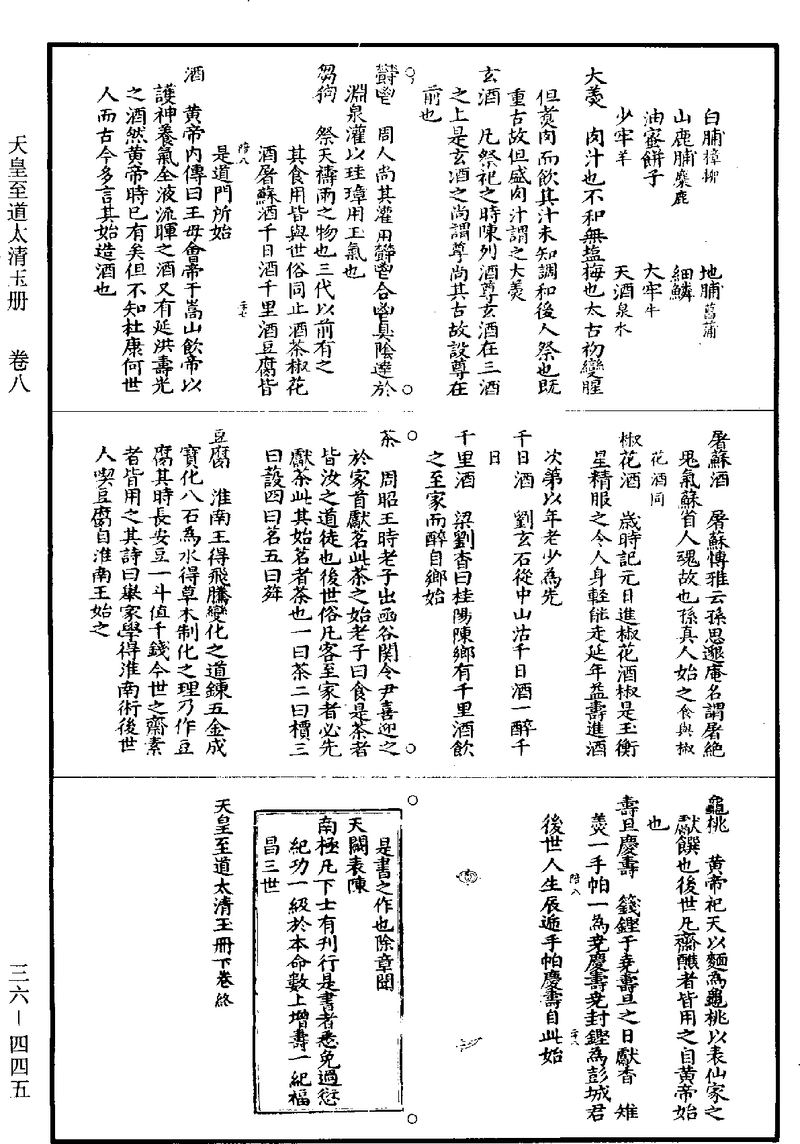 天皇至道太清玉册　卷八
三六—四四五
白脯獐柳　地脯菖蒲
山鹿脯麋鹿　細鱗
油蜜餅子　大牢牛
少牢羊　天酒泉水
大羹　肉汁也不和無塩梅也太古初變腥
但煑肉而飲其汁未知調和後人祭也既
重古故但盛肉汁謂之大羹
玄酒　凡祭祀之時陳列酒尊玄酒在三酒
之上是玄酒之尚謂尊尚其古故設尊在
前也
欝鬯　周人尚其灌用欝鬯合鬯臭陰達於
淵泉灌以珪璋用玉氣也
芻狗　祭天禱雨之物也三代以前有之
其食用皆與世俗同止酒茶椒花
酒屠蘇酒千日酒千里酒豆腐皆
陪八　二七
是道門所始
酒　黄帝内傳曰王母會帝于嵩山飲帝以
護神養氣金液流暉之酒又有延洪壽光
之酒然黄帝時已有矣但不知杜康何世
人而古今多言其始造酒也
屠蘇酒　屠蘇博雅云孫思邈庵名謂屠絶
鬼氣蘇省人魂故也孫真人始之食與椒
花酒同
椒花酒　歲時記元日進椒花酒椒是玉衡
星精服之令人身輕能走延年益壽進酒
次第以年老少為先
千日酒　劉玄石從中山沽千日酒一醉千
日
千里酒　梁劉杳曰桂陽陳鄉有千里酒飲
之至家而醉自鄉始
茶　周昭王時老子出函谷関令尹喜迎之
於家首獻茗此茶之始老子曰食是茶者
皆汝之道徒也後世俗凡客至家者必先
獻茶此其始茗者茶也一曰茶二曰檟三
曰蔎四曰茗五曰荈
豆腐　淮南王得飛騰變化之道錬五金成
寳化八石為水得草木制化之理乃作豆
腐其時長安豆一斗值千錢今世之齋素
者皆用之其詩曰舉家學得淮南術後世
人喫豆腐自淮南王始之
龜桃　黄帝祀天以麵為龜桃以表仙家之
獻饌也後世凡齋醮者皆用之自黄帝始
也
壽旦慶壽　籛鏗于堯壽旦之日獻香　雉
羹一手帕一為堯慶壽堯封鏗為彭城君
陪八　二八
後世人生辰遞手帕慶壽自此始
是書之作也除章聞
天闕表陳
南極凡下士有刋行是書者悉免過愆
紀功一級於本命數上增壽一紀福
昌三世
天皇至道太清玉冊下卷終